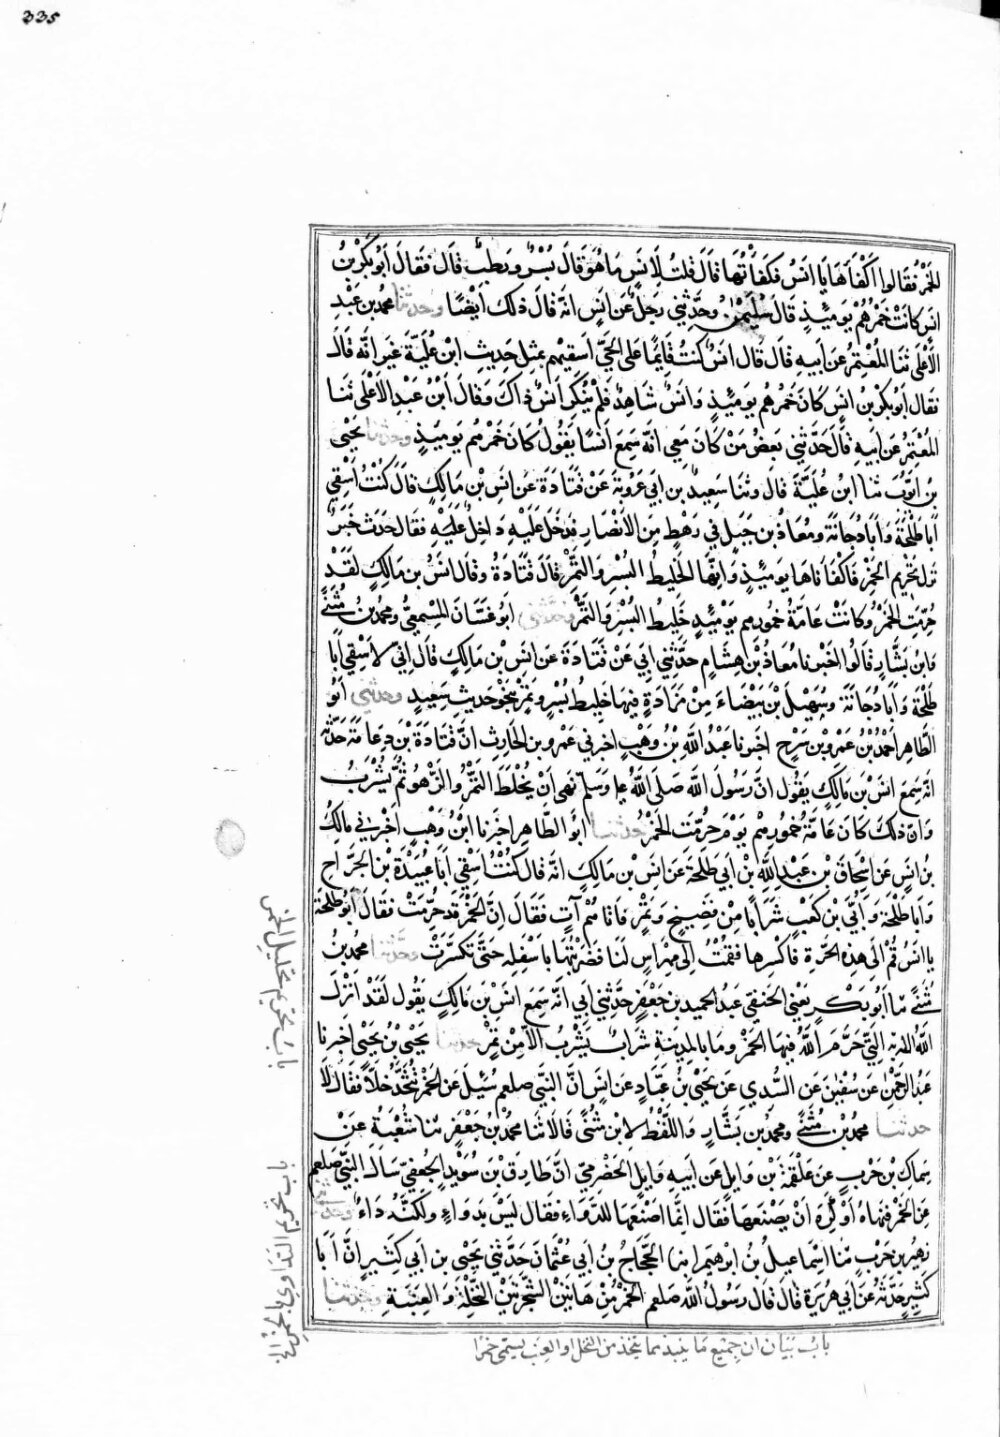 335
الخَمْرُ فَقَالوا اَكْفَاهَا يَا انَسُ فَكَفَاْتُهَا قَالَ قلتُ لِانَسٍ مَا هُوَ قَالَ بُسْرٌ ورطبٌ قَال فَقَالَ اَبُو بَكْرِ بْنُ
انسٍ كانَتْ خَمْرُهُم يَومَئِذٍ قَالَ سُلَيْمٰنُ وحَدَّثَني رَجُلٌ عَن انَسٍ انَّهُ قالَ ذلكَ ايضًا وحدثنا محمد بن عَبْد
الأعْلَى ثنَا المُعْتَمِرُ عَن اَبيهِ قَالَ قَال انَسٌ كنتُ قَائِمًا عَلى الحَيِّ اَسقِيهِم بمثلِ حَديثِ ابْنِ عُلَيَّةَ غَيرَ انَّه قَالَ
فقال اَبُو بكْرِ بْنُ انسٍ كَانَ خَمْرُهُم يَوْمَئِذٍ وَانَسٌ شَاهِدٌ فَلم يُنْكِر انَسٌ ذَاكَ وَقالَ ابْنُ عَبْدِ الاَعْلَى ثنَا
المُعْتَمِرُ عَن اَبيهِ قَالَ حَدّثَني بَعْضُ مَنْ كَانَ مَعِي انَّهُ سَمِعَ انَسًا يَقُولُ كَانَ خَمْرهُم يَوْمَئِذٍ وحدثنا يَحْيَى
بن ايّوبَ ثنا ابنُ عُلَيَّةَ قال وثنَا سَعِيدُ بن ابي عَرُوبةَ عَنْ قَتَادَةَ عَن انَسِ بْنِ مَالِكٍ قَالَ كُنْتُ اَسْقِي
اَبَا طَلْحَةَ وَاَبَا دُجَانَةَ ومُعَاذَ بن جَبَلٍ في رَهْطٍ مِنَ الانْصَارِ فَدَخَلَ عَلَيْهِ دَاخِلٌ عَلَيْهِ فَقَال حَدَثَ خَبَرٌ
نزلَ تَحْريمُ الخَمْرِ فَاكْفَأناهَا يَومَئِذٍ وَانَّها الخَلِيطُ البُسْرِ وَالتَّمْرِ قَالَ قَتَادَةُ وَقَالَ انَسُ بن مَالِكٍ لَقَدْ
حُرِّمَتِ الخَمْرُ وكَانَتْ عَامَّةُ خُمُورهِم يَوْمَئِذٍ خَلِيطَ البُسْرِ وَالتَّمْرِ وحَدّثَني ابُو غَسَّانَ المِسْمَعِيُّ ومُحمدُ بنُ مُثَنًّى
وَابن بَشَّارٍ قَالُوا اخبرنَا مُعَاذُ بْنُ هِشَامٍ حَدَّثَني اَبي عَنْ قَتَادَةَ عَن انَسِ بْنِ مَالِكٍ قَالَ انّي لاَسْقِي اَبَا
طَلْحَةَ وَاَبَا دُجَانَةَ وسُهَيْلَ بْنَ بَيْضَاءَ مِنْ مَزَادَةٍ فِيهَا خَلِيطُ بُسْرٍ وَتَمْرٍ بنحْوِ حَديثِ سَعِيدٍ وحدثني ابُو
الطَّاهِرِ اَحْمدُ بْنُ عَمْرِو بن سَرْحٍ اخبرنَا عَبْدُ اللهِ بْنُ وَهْبٍ اخبرَني عَمْرُو بن الحَارِثِ انَّ قَتَادَةَ بْنَ دِعَامَةَ حَدَّثَهُ
انَّهُ سَمِعَ انَسَ بْنَ مَالِكٍ يَقُول انَّ رَسُولَ اللهِ صَلَّى اللهُ عليه وَسَلم نَهَى اَنْ يُخْلَطَ التَّمْرُ وَالزَّهْوُ ثُمَّ يُشْرَبُ
وَانَّ ذلكَ كَانَ عَامَّةُ خُمُورهِم يَوْمَ حُرِّمَت الخَمْرُ حدثنا ابُو الطَّاهِرِ اخبرنَا ابْنُ وَهبٍ اَخْبَرَني مالِكُ
بْنُ انَسٍ عَن اِسْحَاقَ بْنِ عَبْدِ اللهِ بْنِ ابي طَلحَةَ عَن انَسِ بْنِ مَالِكٍ انَّهُ قالَ كُنْتُ اَسْقِي ابَا عُبَيْدَةَ بْنَ الجَرَّاحِ
وَابَا طَلْحَةَ وَاُبَيَّ بْنَ كَعْبٍ شَرَابًا مِنْ فَضِيخٍ وَتَمْرٍ فَاتَاهُمْ آتٍ فَقَالَ اِنَّ الخَمْرَ قَد حُرِّمَتْ فقَالَ ابُو طَلْحَةَ
يا انَسُ قُمْ اِلى هٰذِهِ الجَرَّةِ فَاكْسِرهَا فَقُمْتُ اِلى مِهْرَاسٍ لَنَا فَضَرَبْتُهَا بِاَسْفَلِهِ حَتّى تَكَسَّرَتْ وحَدّثنا محمدُ بنُ
مُثَنًّى ثنا اَبُو بَكْرٍ يَعْنِي الحَنَفِي عَبدُ الحَمِيدِ بن جَعْفَرٍ حَدَّثَني اَبي انَّهُ سَمِعَ انَسَ بْنَ مَالِكٍ يَقُول لَقَدْ اَنْزَلَ
اللهُ الآية الَّتِي حَرَّمَ اللهُ فِيهَا الخَمْرَ ومَا بِالمدِينَةِ شَرَابٌ يُشْرَبُ اِلَّا مِنْ تَمْرٍ حدثنا يَحْيَى بْنُ يَحْيَى اَخبرنَا
عَبدُ الرَّحْمٰنِ عَن سُفْيٰنَ عَنِ السُّدّي عَن يَحيَى بنِ عَبَّادٍ عَن انَسٍ انَّ النَّبِيَّ صلعم سُئِلَ عَنِ الخَمْرِ تُتَّخَذُ خَلًّا فَقَالَ لَا
حدثنا محمدُ بن مُثَنًّى ومحمدُ بن بَشَّارٍ وَاللَّفظُ لِابْنِ مُثَنًّى قَالَا ثنَا محمدُ بنُ جَعْفَرٍ ثنَا شُعْبَةُ عَنْ
سِمَاكِ بْنِ حَرْبٍ عَن عَلْقَمَةَ بْنِ وَايلٍ عَن اَبيهِ وَايلٍ الحَضْرَميّ انَّ طَارِقَ بْنَ سُوَيْدٍ الجُعْفِيّ سَالَ النَّبِيَّ صلعم
عَنِ الخَمْرِ فَنَهَاهُ اَوْ كَرِهَ اَنْ يَصْنَعهَا فَقَال اِنَّمَا اَصْنَعُهَا لِلدَّوَاءِ فَقَال لَيْسَ بِدَوَاءٍ ولٰكنَّهُ دَاءٌ وحدثني
زهَيْرُ بن حَرْبٍ ثنَا اِسْمَاعِيلُ بْنُ ابرهيمَ انبا الحَجَّاجُ بن ابي عُثمَانَ حَدَّثَني يَحْيَى بْنُ ابي كَثِيرٍ انَّ اَبَا
كَثِيرٍ حَدَّثهُ عَن ابي هرَيرَةَ قَال قَال رَسُولُ الله صلعم الخَمْرُ مِنْ هَاتَيْنِ الشَّجَرَتَيْنِ النَّخْلَةِ وَالعِنَبَةِ وحدثنا
باب تحريم تخليل الخمر
باب تحريم التداوي بالخمر
باب بيان ان جميع ما ينبذ مما يتخذ من النخل او العنب يسمى خمرا